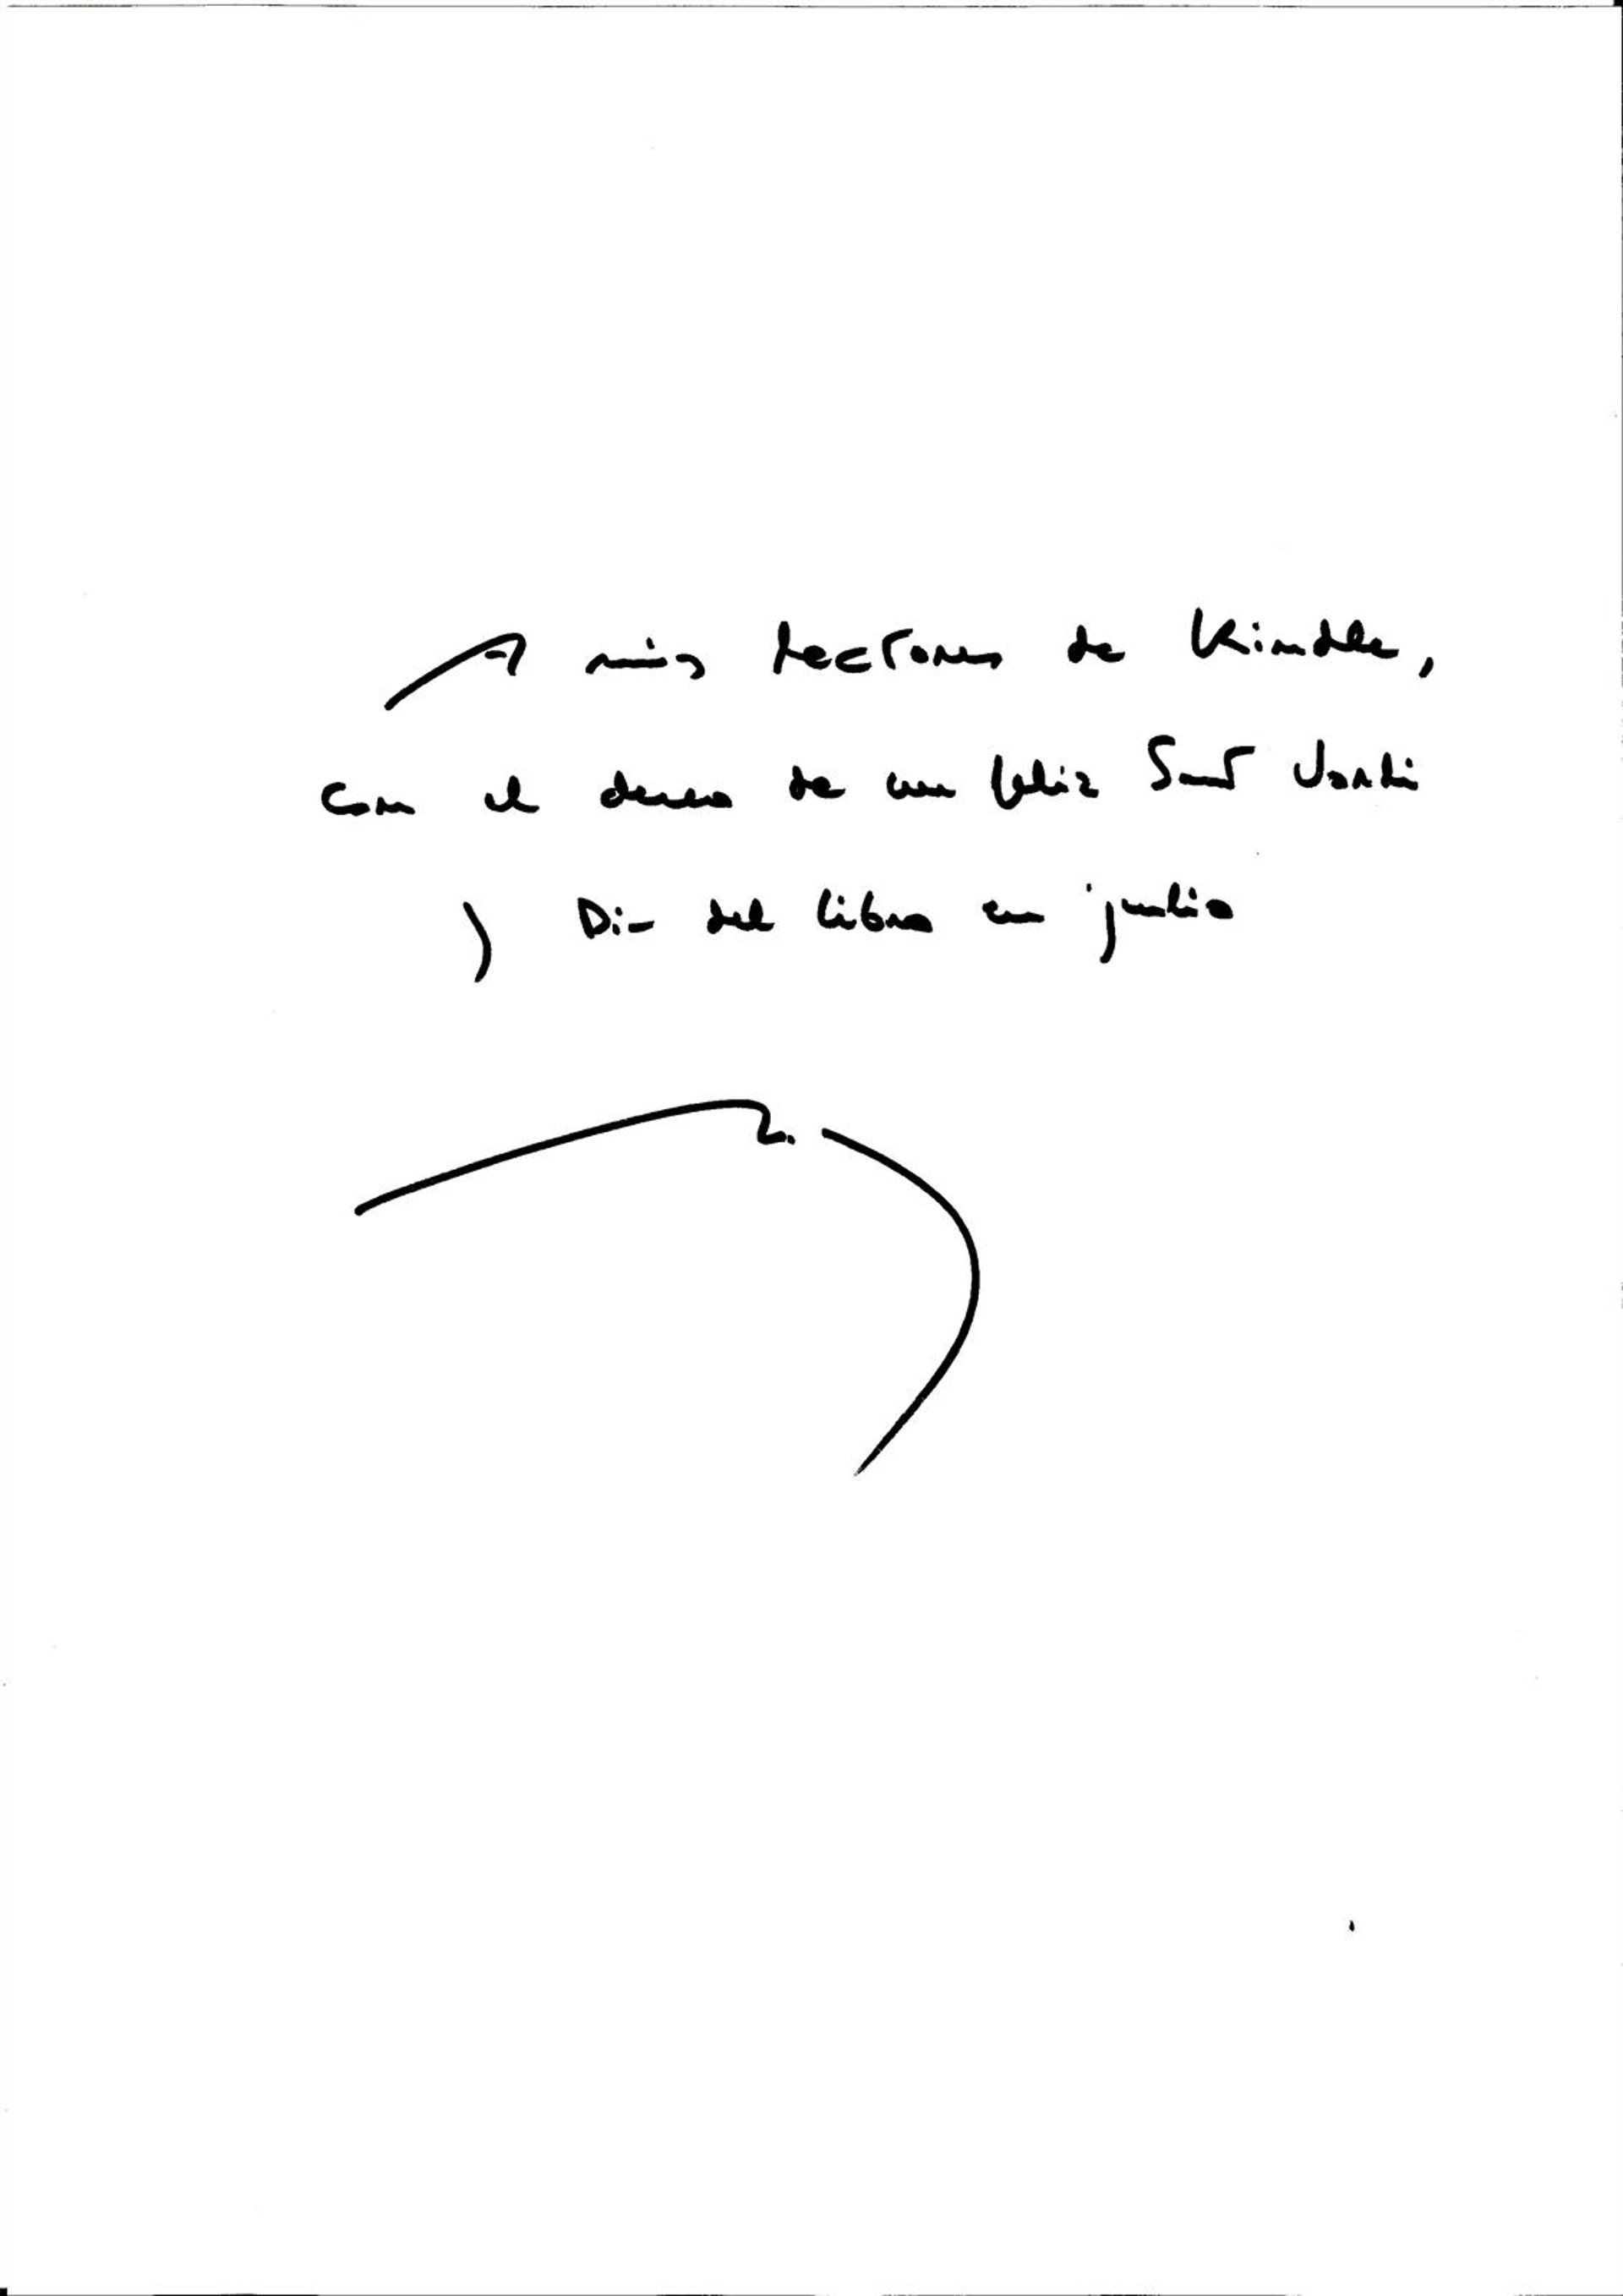 A mis lectores de Kindle,
con el deseo de un feliz Sant Jordi
y Día del libro en julio